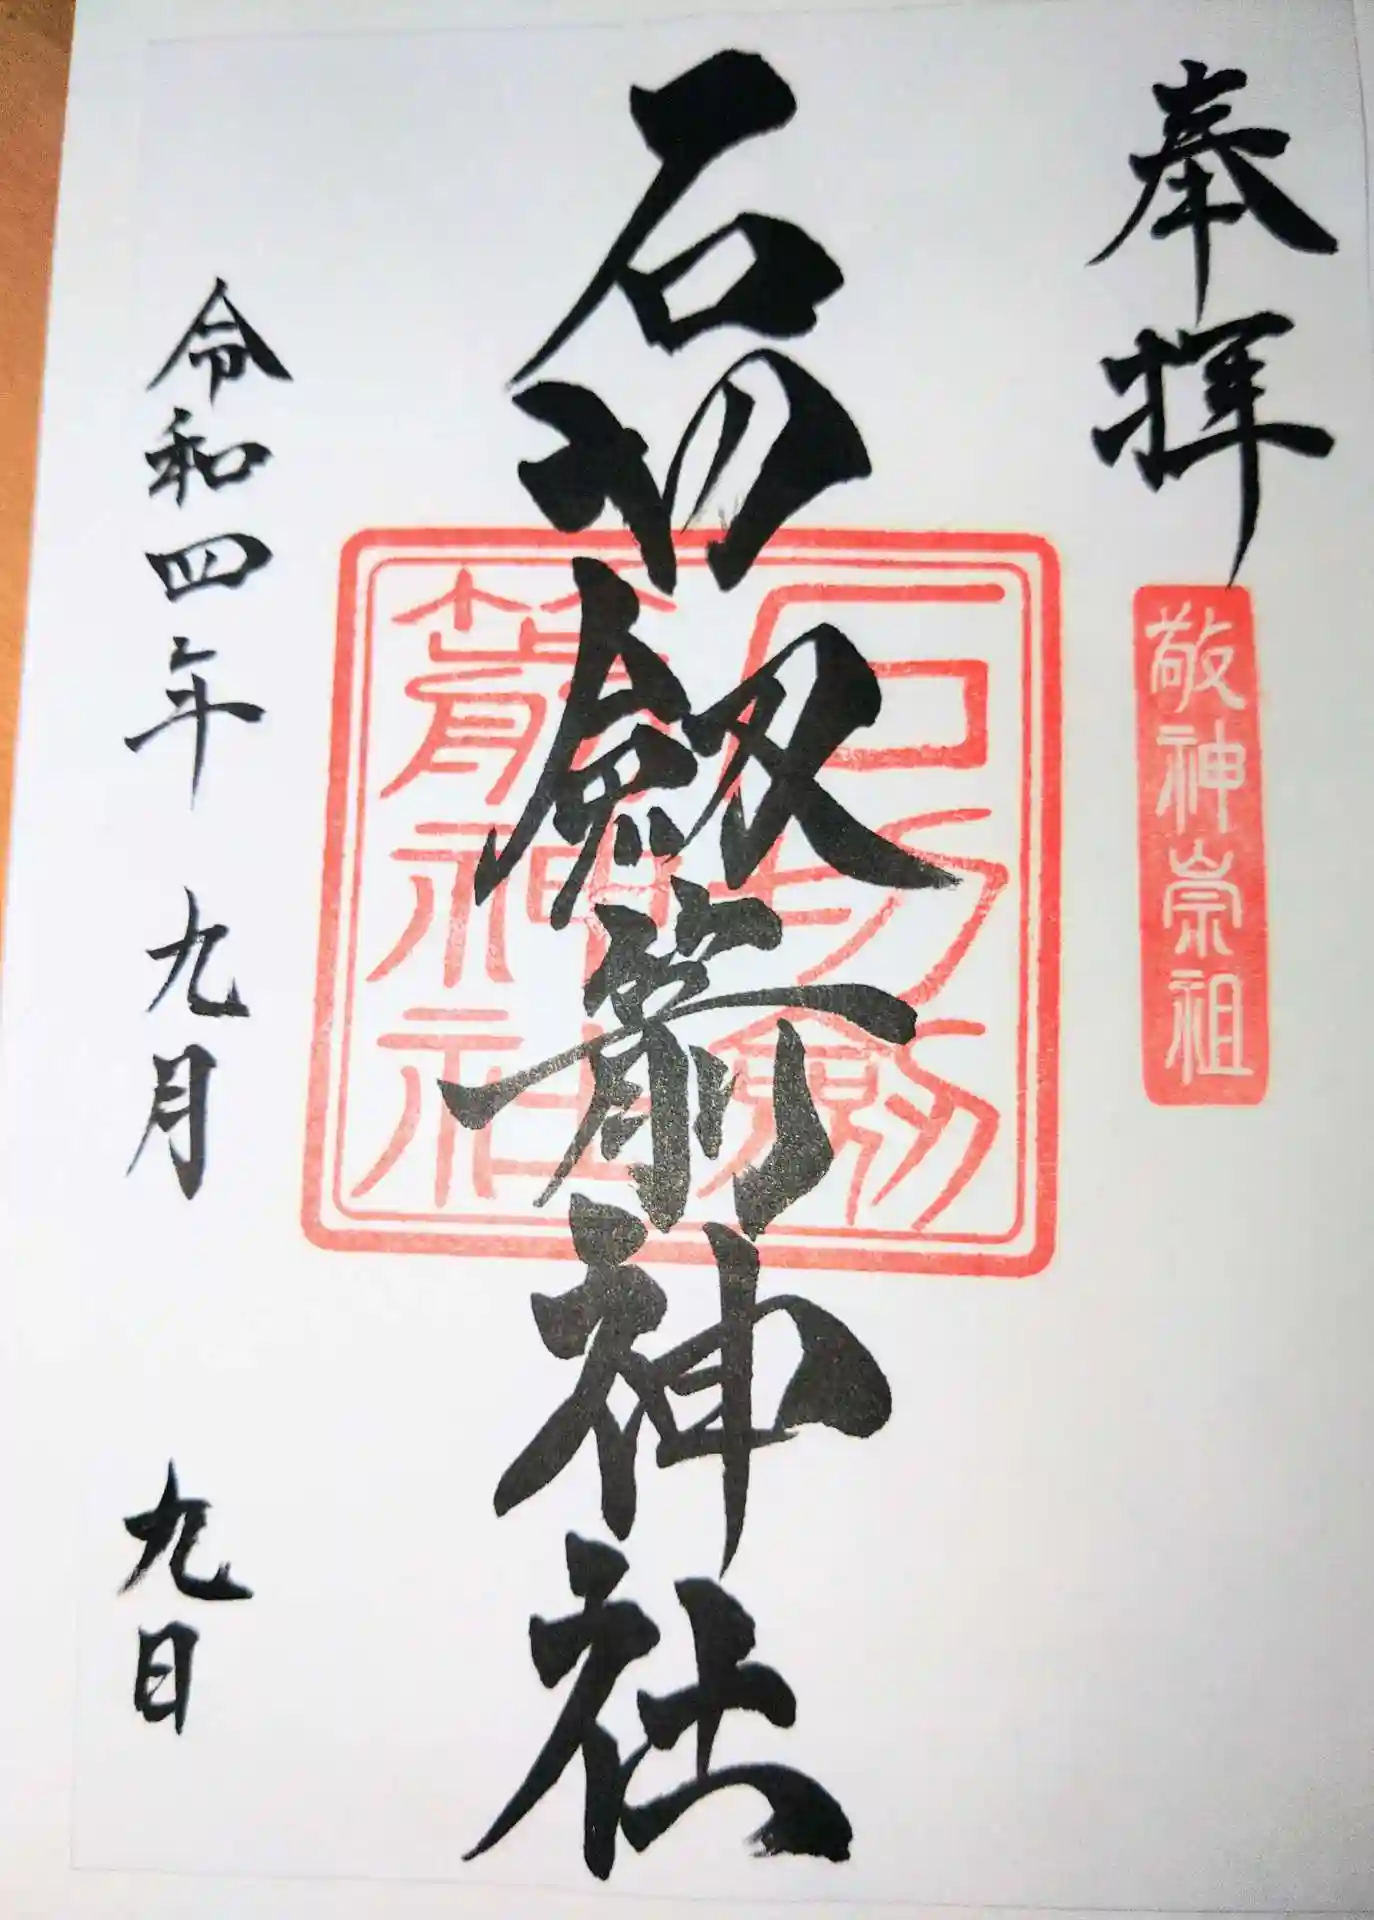 奉拝
敬神崇祖
石切剱箭神社
石切劔
箭神社
令和四年 九月 九日